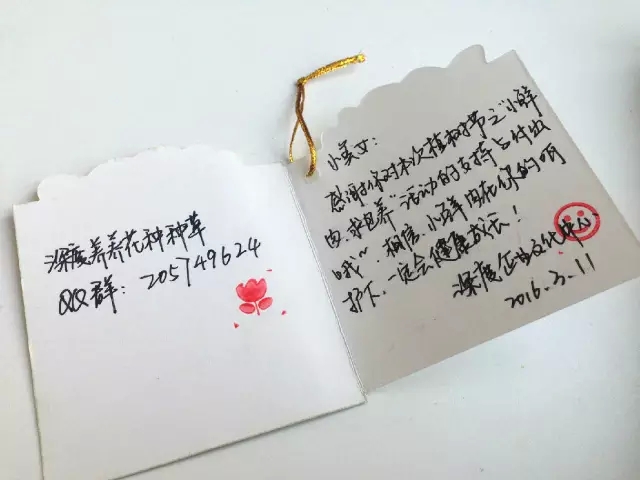 深度养养花种种草
QQ群：205749624
小美女：
感谢你对本次植树节之“小鲜
肉、求包养”活动的支持与付出
哦~相信，小鲜肉在你的呵
护下，一定会健康成长！
深度企业文化中心
2016.3.11